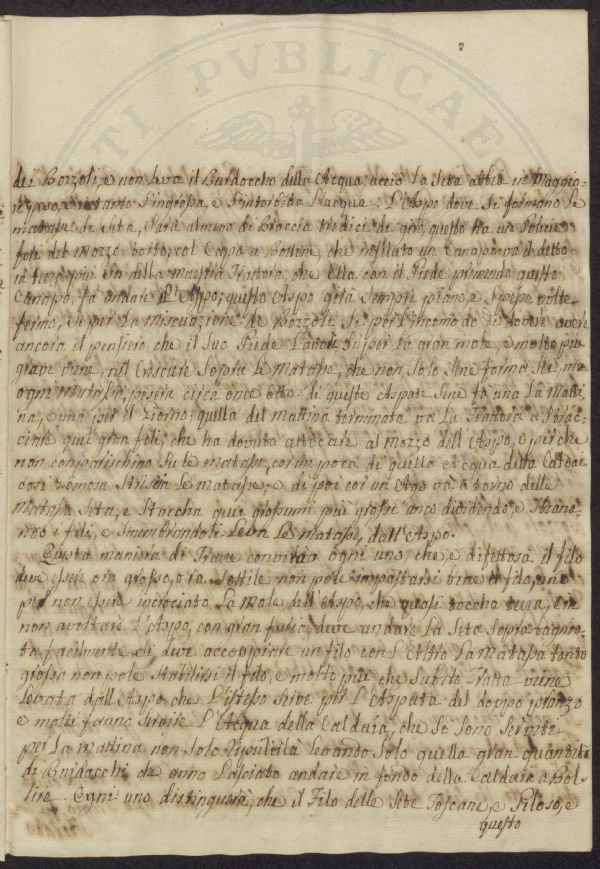 TI PVBLICAE
dei Bozzoli, e non leva il Burdocche della Acqua, acciò La Seta abbia in Maggio-
re peso, e intanto S'ingrossa, e S'intorbida L'acqua. L'Aspo dove Si formano Le
matasse di Seta, Sarà almeno di Braccia tredici di giro, questo ha un
del mozzo sotto, col Capo a Bottone, che infilato un Canapo va il detto
in terra più in della maestra Trattora, che Ella con il Piede premendo questo
Canapo, fa andare il Aspo; questo Aspo gira Sempre piano, e Spesse volte
fermo, Si per La de Bozzoli Si per L'incomodo di dovere avere
ancora il pensiero che il Suo Piede Lavori Si per La gran mole, e molto piu
grave viene, nel Crescere Sopra le Matasse, che non Solo Sene forma Sei, ma
ogni Matassa, pesera circa once Otto. di queste Aspate Sene fà una La Matti
na, e una per il Giorno; quella del mattina terminata va La Trattora a Strac
ciare quei gran fili, che ha dovuto attaccare al mozzo dell'Aspo, e perche
non comparischino Su le matasse, con un poca di quella Acqua della Caldai
cosi Striscia le matasse, e di poi con un Ago va a torno delle
Matassa Seta, e Staccha quei grossumi più grossi anco dividendo, e
ndo i fili, e Smembrandoli Leva Le matasse, dall'Aspo.
Questa maniera di Trarre converrà ogni uno che, e difettosa il filo
deve essere ora grosso, ora Sottile non pole impastarsi bene il filo, uno
per non essere incrociato La mole dell'Aspo, che quasi toccha terra, e in
non avoltare L'Aspo, con gran furia, deve andare La Seta Sopra bagna-
ta facilmente Si deve accoppiare un filo con L'Altro La matassa tanto
grossa non pole Stabilirsi il filo, e molto più che Subito Tratta viene
Levata dall'Aspo che L'istesso Serve per L'Aspata del doppo pranzo
e molti fanno Servire L'Acqua della Caldaia, che Si Sono Servite
per La mattina non Solo Ripulita Levando Solo quella gran quantità
di che anno Lasciato andare in fondo della Caldaia a bol-
lire. Ogni uno distinguerà, che il Filo delle Sete Toscane, e Piloso, e
questo